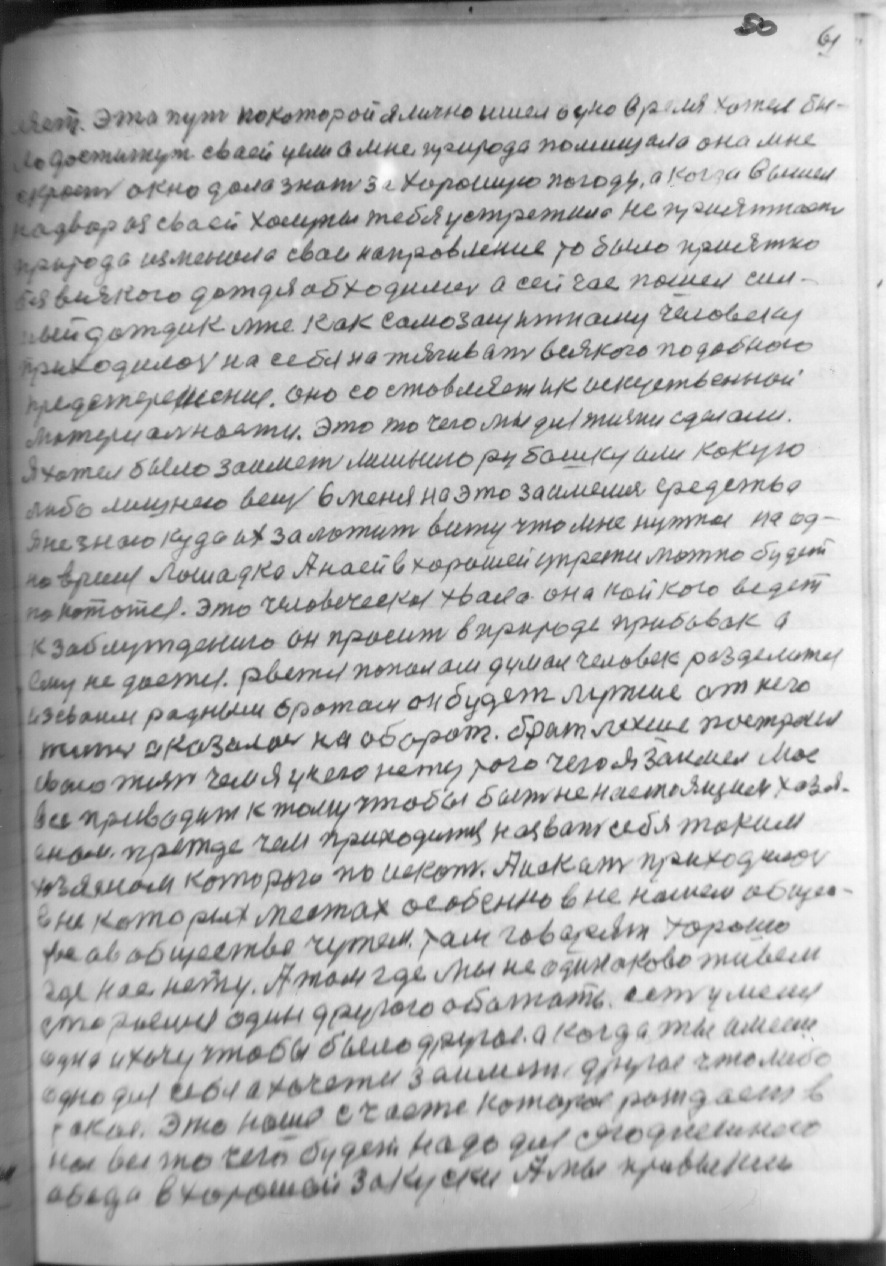 50 61
ляет. Эта пут покоторой я лично ишел одно время хотел бы-
ло достигнут сваей цели а мне природа помишала она мне
скрость окно дала знат за хорошую погоду, а когда вышел
надвор из сваей халупы тебя устретила неприятность
природа изменила свое направление то было приятно
без всякого дождя обходилися а сейчас пошел сил-
ный дождик мне как самозащитнаму человеку
приходилося на себя натягиват всякого подобного
предстережения. оно составляется ик искуственной
материалности. Это то чего мы для жизни сделали.
Я хотел было заимет лишнию рубашку или какую
либо лишнею вещ в меня на это заимелися средства
я не знаю куда их заложит вижу что мне нужна на од-
но время лошадка А на ей в хорошей упрежи можно будет
покототся. Это человеческая хвала она кой кого ведет
к заблуждению он просит в природе прибавак а
ему не дается. рвется пополам думая человек разделится
из сваим родным братом он будет лутше от него
жить аказалося на оборот. брат лутше построил
свою жизн чем я у него нету того чего я заимел мое
все приводит к тому чтобы быт не настоящим хозя-
ином. прежде чем приходится назват себя таким
хозяином которого поискат. А искат приходилося
в некоторых местах особенно в не нашем общес-
тве об обществе чужем. там говорят хорошо
где нас нету. А там где мы не одинаково живем
стараемся один другого обогнать. есть у меня
одно и хочу чтобы было другое. а когда ты имееш
одно для себя а хочется заимет другое что либо
такое. Это наше счастье которое рождает в
нас все то чего будет надо для сягодняшнего
обеда в хорошой закуски А мы привыкли